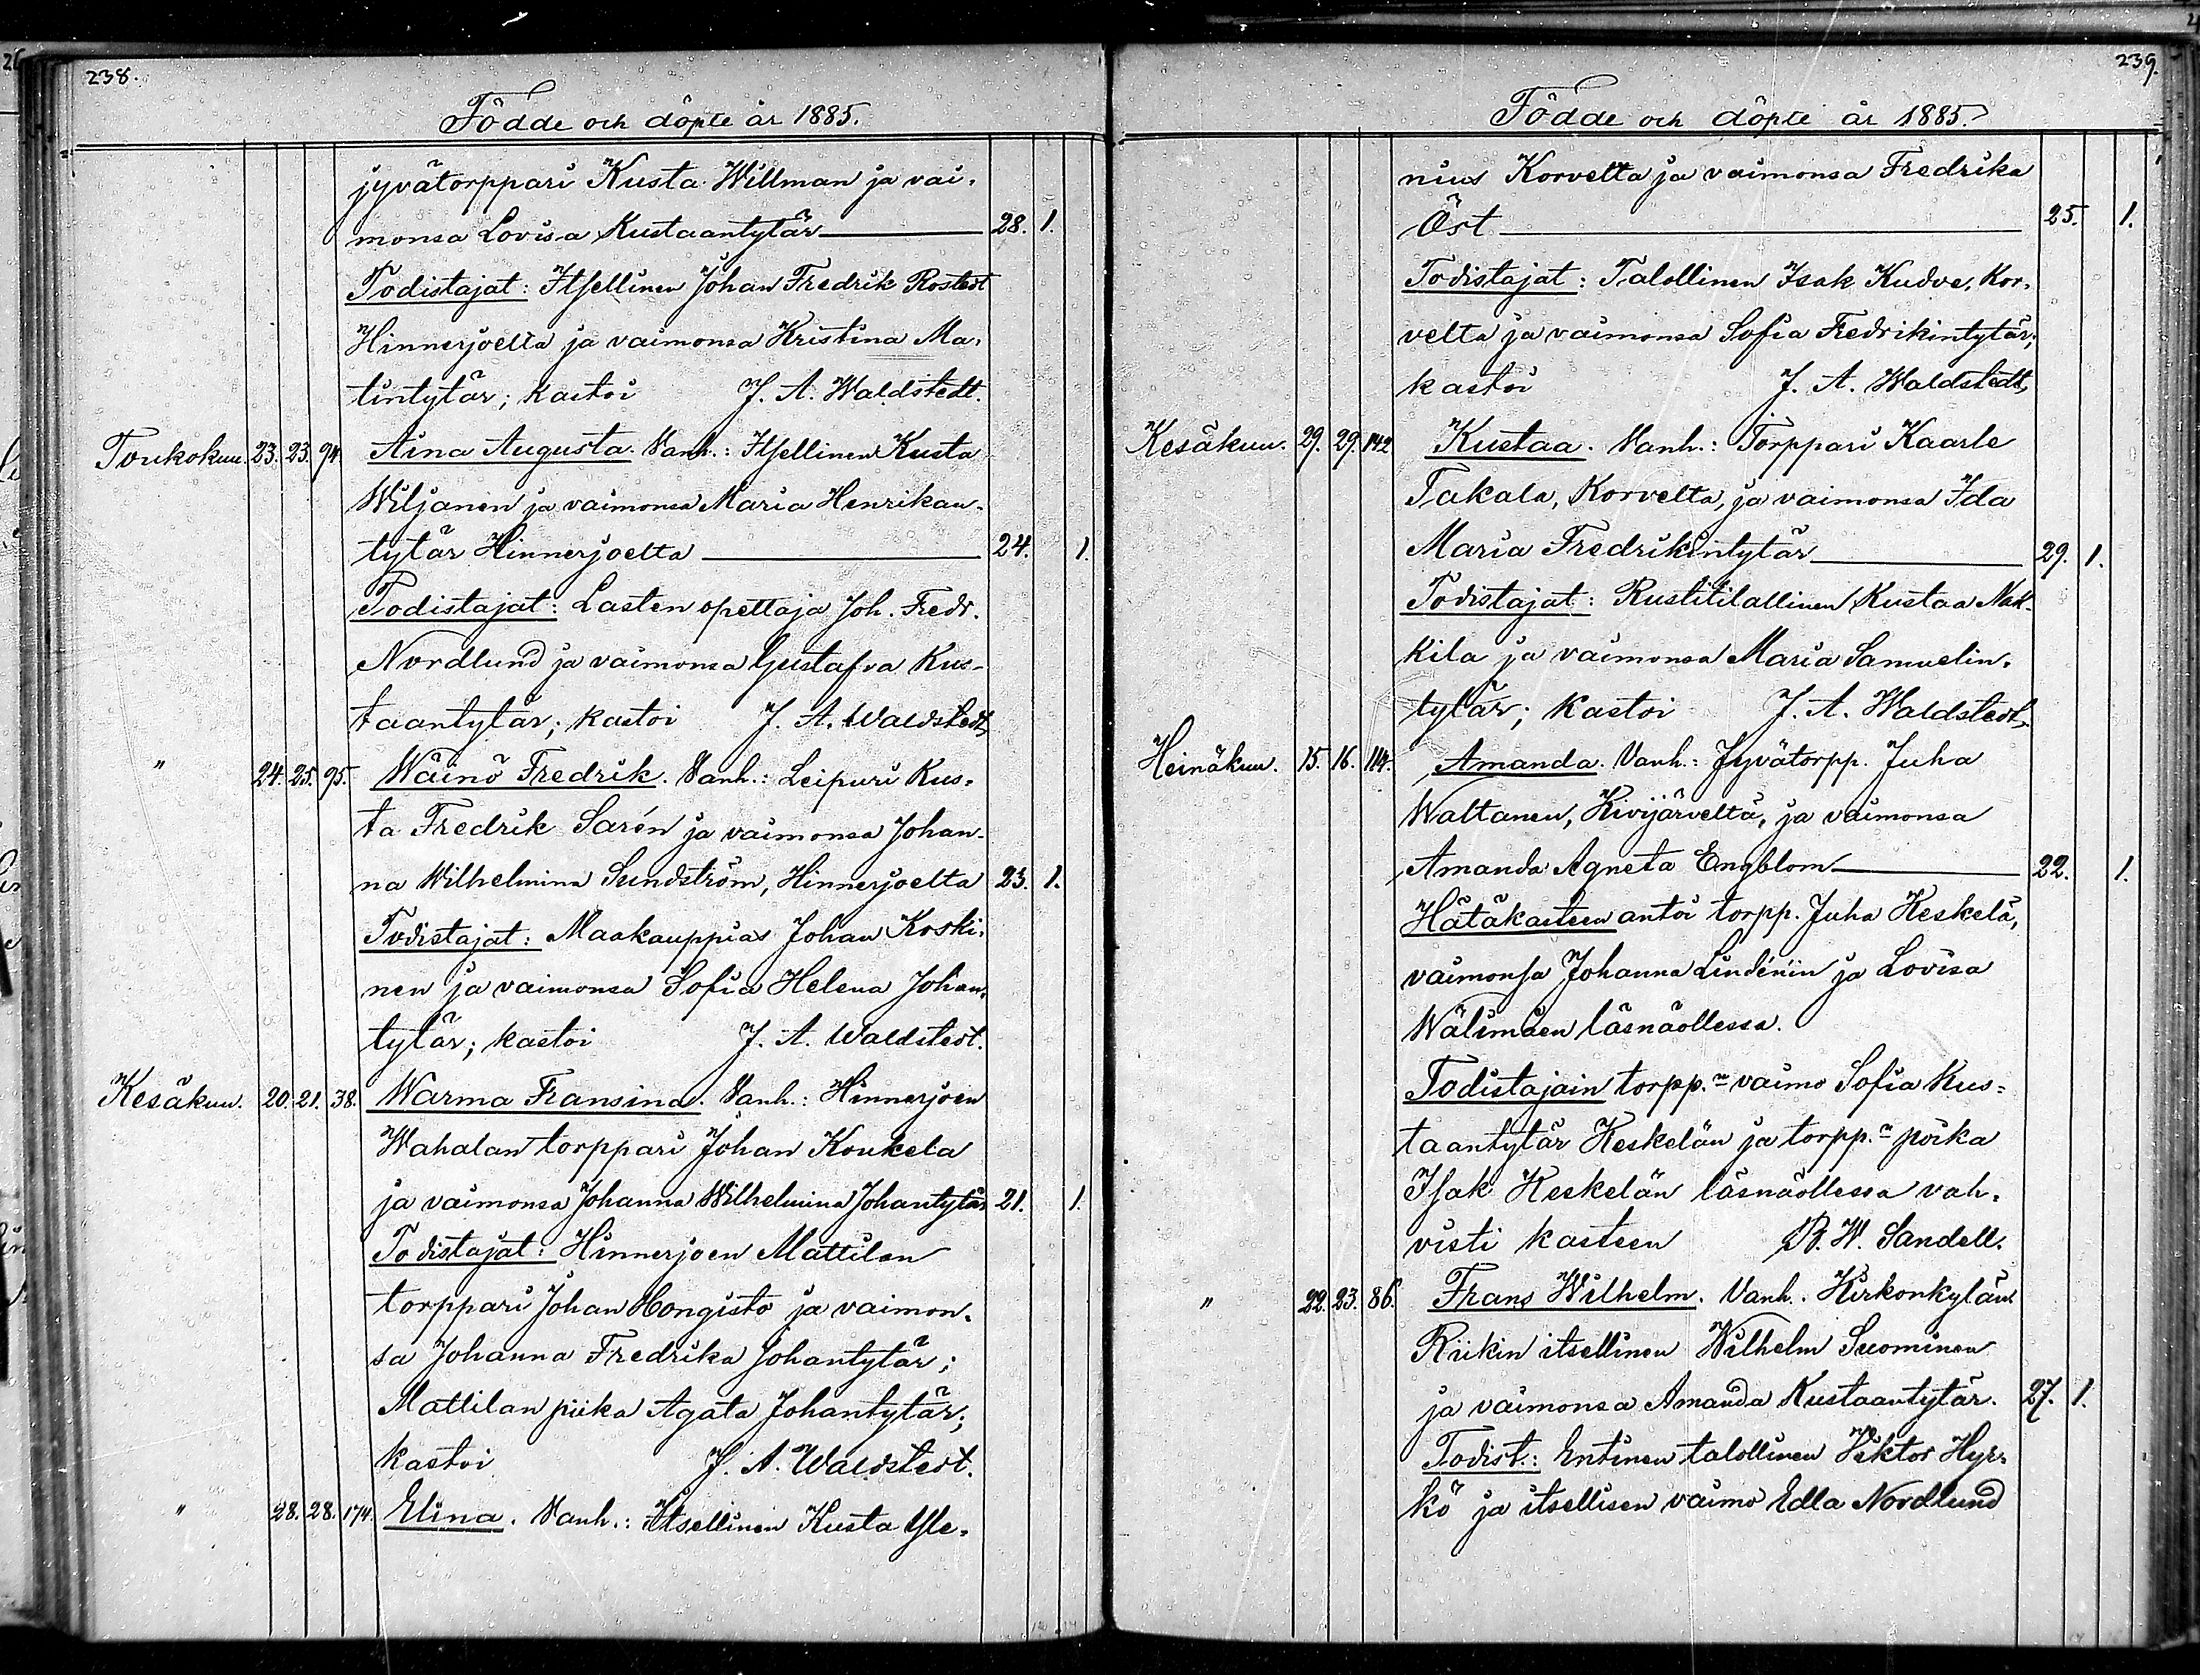 238.
Födde och döpte år 1885.
jyvätorppari Kusta Willman ja vai-
monsa Lovisa Kustaantytär 28. 1.
Todistajat: Itsellinen Johan Fredrik Rostedt
Hinnerjoelta ja vaimonsa Kristina Ma-
tintytär; kastoi J. A. Waldstedt.
Toukokuu. 23. 23. 94. Aina Augusta. Vanh.: Itsellinen Kusta
Wiljanen ja vaimonsa Maria Henrikan-
tytär Hinnerjoelta 24. 1.
Todistajat: Lasten opettaja Joh. Fredr.
Nordlund ja vaimonsa Gustafva Kus-
taantytär; kastoi J. A. Waldstedt
" 24. 25. 95. Wäinö Fredrik. Vanh.: Leipuri Kus-
ta Fredrik Sarén ja vaimonsa Johan-
na Wilhelmina Sundström, Hinnerjoelta 23. 1.
Todistajat: Maakauppias Johan Koski-
nen ja vaimonsa Sofia Helena Johan-
tytär; kastoi J. A. Waldstedt.
Kesäkuu. 20. 21. 38. Warma Fransina. Vanh.: Hinnerjoen
Wahalan torppari Johan Koukela
ja vaimonsa Johanna Wilhelmina Johantytär 21. 1.
Todistajat: Hinnerjoen Mattilan
torppari Johan Hongisto ja vaimon-
sa Johanna Fredrika Johantytär;
Mattilan piika Agata Johantytär;
kastoi J. A. Waldstedt.
" 28. 28. 174. Elina. Vanh.: Itsellinen Kusta
239.
Födde och döpte år 1885.
nius Korvelta ja vaimonsa Fredrika
Öst 25. 1.
Todistajat: Talollinen Isak Kudva, Kor-
velta ja vaimonsa Sofia Fredrikintytär;
kastoi J. A. Waldstedt
Kesäkuu. 29. 29. 142 Kustaa. Vanh.: Torppari Kaarle
Takala, Korvelta, ja vaimonsa Ida
Maria Fredrikintytär 29. 1.
Todistajat: Rustitilallinen Kustaa Nak-
kila ja vaimonsa Maria Samuelin-
tytär; kastoi J. A. Waldstedt.
Heinäkuu. 15. 16. 114. Amanda. Vanh.: Jyvätorpp. Juha
Waltanen, Kivijärveltä, ja vaimonsa
Amanda Agneta Engblom 22. 1.
Hätäkasteen antoi torpp. Juha Keskelä,
vaimonsa Johanna Lindénin ja Lovisa
Wälimäen läsnäollessa.
Todistajain torpp.n vaimo Sofia Kus-
taantytär Keskelän ja torpp.n poika
Isak Keskelän läsnäollessa vah-
visti kasteen B. W. Sandell.
" 22. 23. 86. Frans Wilhelm. Vanh. Kirkonkylän
Riikin itsellinen Wilhelm Suominen
ja vaimonsa Amanda Kustaantytär. 27. 1.
Todist.: Entinen talollinen Viktor Hyr-
kö ja itsellisen vaimo Edla Nordlund